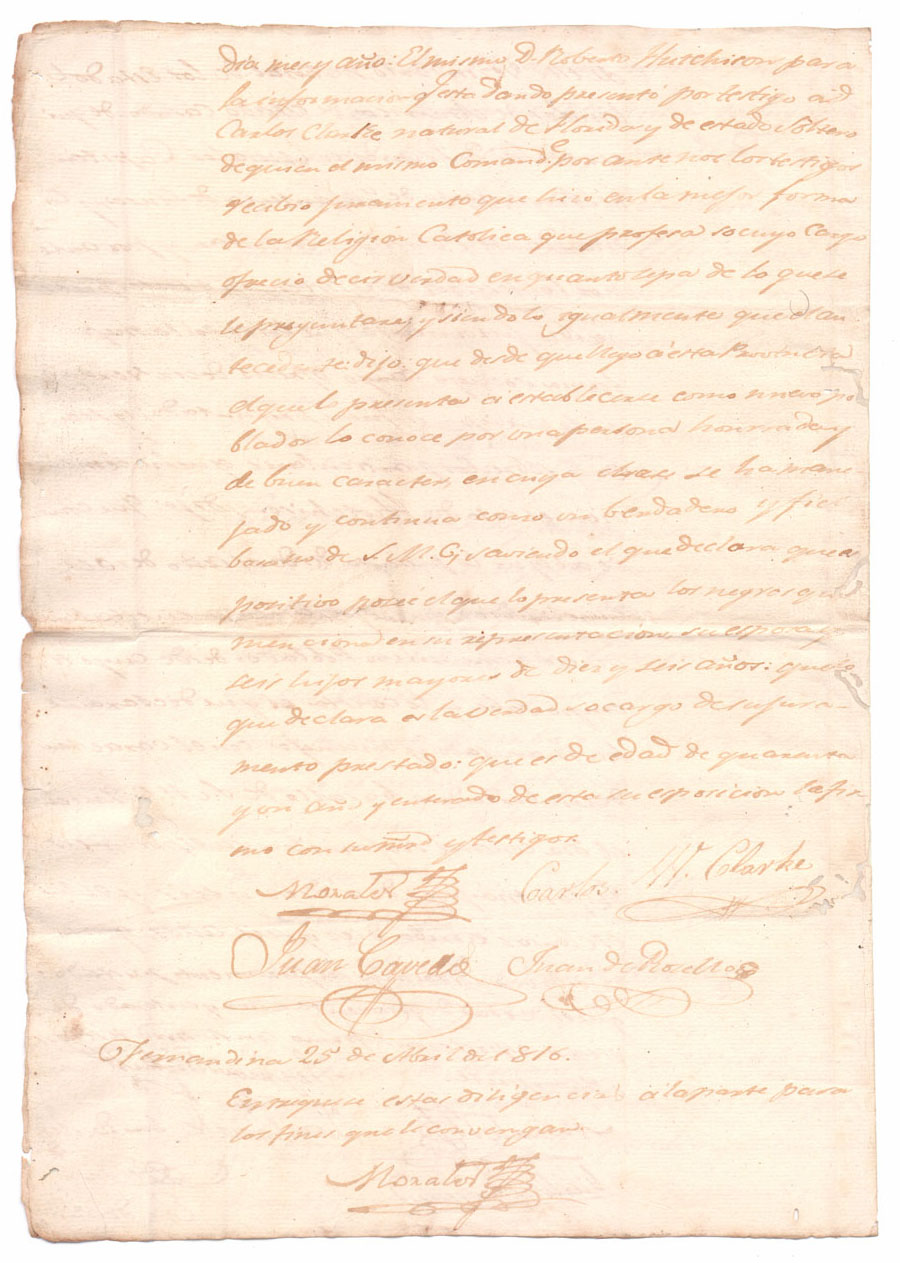 dia mes y año: El mismo Dn. Roberto Hutchison para
la informacion qe. esta dando presentó por testigo a dn
Carlos Clarke natural de Florida y de estado Soltero
de quien el mismo Comande. por ante nos los testigos
recibio juramento que hizo en la mejor forma
de la Religion Catolica que profesa so cuyo Cargo
ofrecio decir verdad en quanto sepa de lo que se
le preguntare, y siendolo igualmente que el an
tecedente: dijo: que desde que llego á esta Provincia
el que lo presenta a establecerse como nuevo po
blador lo conoce por una persona honrrada y
de buen caracter, en cuya clase se ha mane
jado y continua como un berdadero y fiel
basallo de S. M. C; saviendo el que declara que es
positivo posée el que lo presenta los negros que
menciona en su representacion, su esposa y
seis hijos mayores de diez y seis años: que lo
que declara es la verdad so cargo de su jura-
mento prestado: que es de edad de quarenta
y un año y enterado de esta su esposicion la fir
mo con su md y testigos
Morales Carlos W. Clarke
Juan Cavedo Juan de Rosello
Fernandina 25 de Abril de 1816.
Entreguese estas diligencias á la parte para
los fines que le convengan
Morales